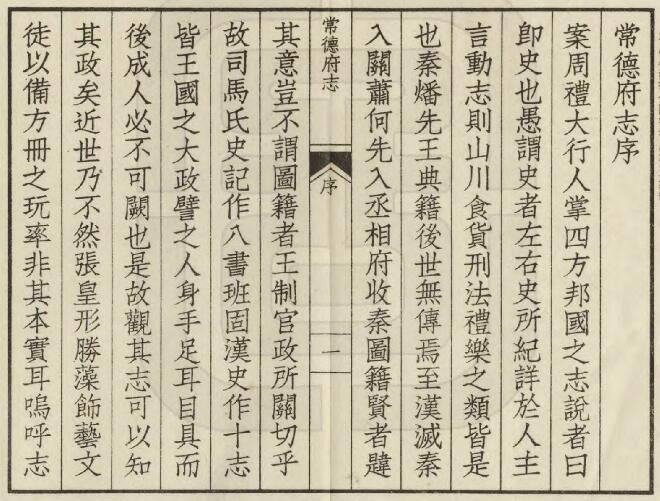 常德府志序
案周禮大行人掌四方邦國之志說者曰
卽史也愚謂史者左右史所紀詳於人主
言動志則山川食貨刑法禮樂之類皆是
也秦燔先王典籍後世無傳焉至漢滅秦
入關蕭何先入丞相府收秦圖籍賢者韙
常德府志
序
一
其意豈不謂圖籍者王制官政所關切乎
故司馬氏史記作八書班固漢史作十志
皆王國之大政譬之人身手足耳目具而
後成人必不可闕也是故觀其志可以知
其政矣近世乃不然張皇形勝藻飾藝文
徒以備方冊之玩率非其本實耳嗚呼志